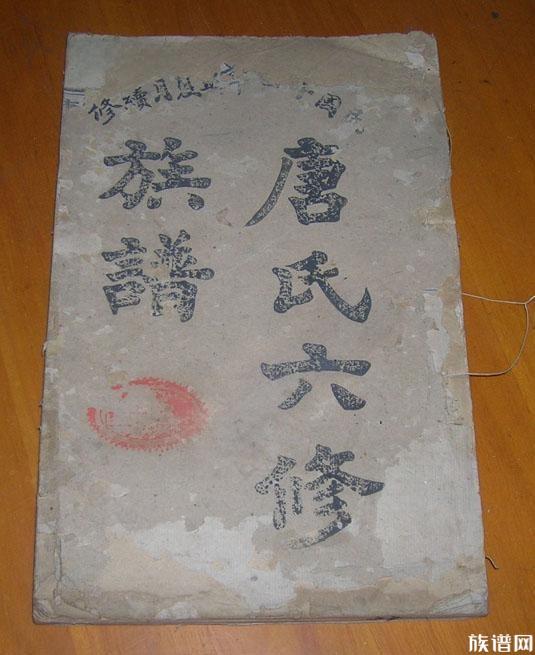 民國十年五月續修
唐氏六修
族譜
族谱网